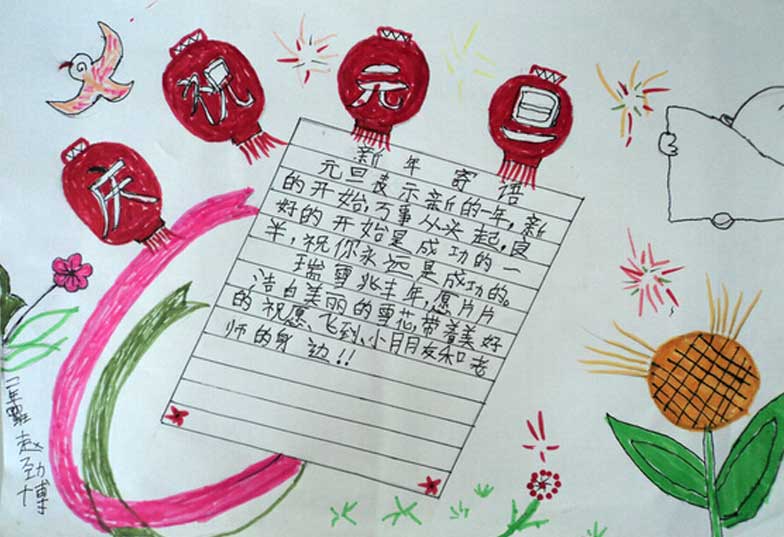 庆祝元旦
新年寄语
元旦表示新的一年,新
的开始,万事从头起,良
好的开始是成功的一
半,祝你永远是成功的。
瑞雪兆丰年,愿片片
洁白美丽的雪花,带着美好
的祝愿、飞到小朋友和老
师的身边!!
二年 赵劲博